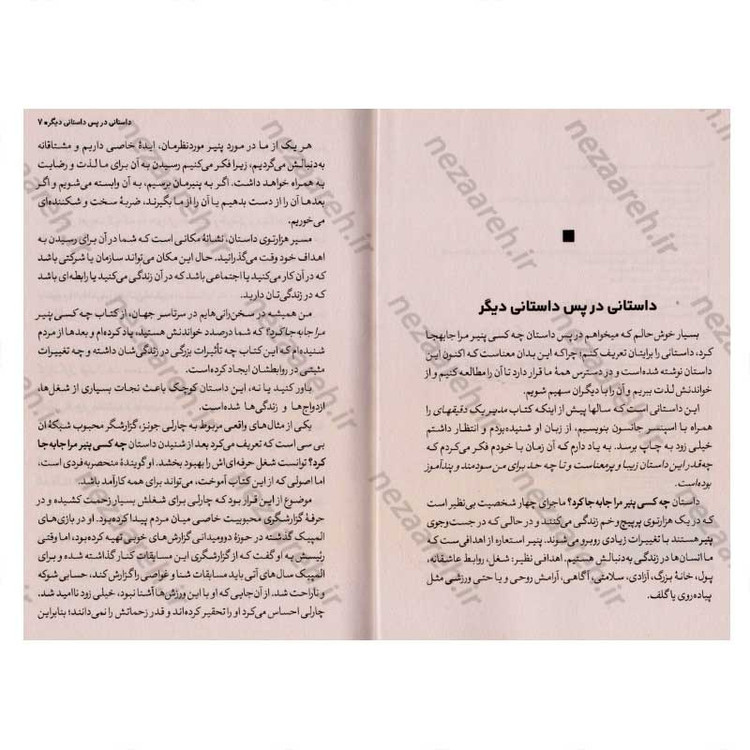 داستانی در پس داستانی دیگر
بسیار خوش حالم که میخواهم در پس داستان چه کسی پنیر مرا جابهجا
کرد، داستانی را برایتان تعریف کنم؛ چراکه این بدان معناست که اکنون این
داستان نوشته شده‌است و در دسترس همهٔ ما قرار دارد تا آن را مطالعه کنیم و از
خواندنش لذت ببریم و آن را با دیگران سهیم شویم.
این داستانی است که سالها پیش از اینکه کتاب مدیر یک دقیقهای را
همراه با اسپنسر جانسون بنویسیم، از زبان او شنیده‌بودم و انتظار داشتم
خیلی زود به چاپ برسد. به یاد دارم که آن زمان با خودم فکر می‌کردم که
چه‌قدر این داستان زیبا و پرمعناست و تا چه حد برای من سودمند و پندآموز
بوده‌است.
داستان چه کسی پنیر مرا جابه جا کرد؟ ماجرای چهار شخصیت بی‌نظیر است
که در یک هزارتوی پرپیچ‌وخم زندگی می‌کنند و در حالی که در جست‌وجوی
پنیر هستند با تغییرات زیادی روبرو می‌شوند. پنیر استعاره از اهدافی است که
ما انسان‌ها در زندگی به‌دنبالش هستیم. اهدافی نظیر: شغل، روابط عاشقانه،
پول، خانهٔ بزرگ، آزادی، سلامتی، آگاهی، آرامش روحی و یا حتی ورزشی مثل
پیاده‌روی یا گلف.
داستانی در پس داستانی دیگر ■ ۷
هر یک از ما در مورد پنیر موردنظرمان، ایدهٔ خاصی داریم و مشتاقانه
به‌دنبالش می‌گردیم، زیرا فکر می‌کنیم رسیدن به آن برای ما لذت و رضایت
به همراه خواهد داشت. اگر به پنیرمان برسیم، به آن وابسته می‌شویم و اگر
بعدها آن را از دست بدهیم یا آن را از ما بگیرند، ضربهٔ سخت و شکننده‌ای
می‌خوریم.
مسیر هزارتوی داستان، نشانهٔ مکانی است که شما در آن برای رسیدن به
اهداف خود وقت می‌گذرانید. حال این مکان می‌تواند سازمان یا شرکتی باشد
که در آن کار می‌کنید یا اجتماعی باشد که در آن زندگی می‌کنید یا رابطه‌ای باشد
که در زندگی‌تان دارید.
من همیشه در سخن‌رانی‌هایم در سرتاسر جهان، از کتاب چه کسی پنیر
مرا جابه جا کرد؟ که شما درصدد خواندنش هستید، یاد کرده‌ام و بعدها از مردم
شنیده‌ام که این کتاب چه تأثیرات بزرگی در زندگی‌شان داشته و چه تغییرات
مثبتی در روابطشان ایجاد کرده‌است.
باور کنید یا نه، این داستان کوچک باعث نجات بسیاری از شغل‌ها،
ازدواج‌ها و زندگی‌ها شده‌است.
یکی از مثال‌های واقعی مربوط به چارلی جونز، گزارشگر محبوب شبکهٔ ان
بی سی است که تعریف می‌کرد بعد از شنیدن داستان چه کسی پنیر مرا جابه جا
کرد؟ توانست شغل حرفه‌ای‌اش را بهبود بخشد. او گویندهٔ منحصربه‌فردی است،
اما اصولی که از این کتاب آموخت، می‌تواند برای همه کارآمد باشد.
موضوع از این قرار بود که چارلی برای شغلش بسیار زحمت کشیده و در
حرفهٔ گزارشگری محبوبیت خاصی میان مردم پیدا کرده‌بود. او در بازی‌های
المپیک گذشته در حوزهٔ دوومیدانی گزارش های خوبی تهیه کرده‌بود، اما وقتی
رئیسش به او گفت که از گزارشگری این مسابقات کنار گذاشته شده و برای
المپیک سال‌های آتی باید مسابقات شنا و غواصی را گزارش کند، حسابی شوکه
و ناراحت شد. از آن‌جایی که او با این ورزش‌ها آشنا نبود، خیلی زود ناامید شد.
چارلی احساس می‌کرد او را تحقیر کرده‌اند و قدر زحماتش را نمی‌دانند؛ بنابراین
nezaareh.ir